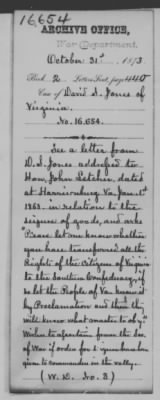 16654
ARCHIVE OFFICE,
War Department.
October 31st, 1873
Book 2. Letters Sent, page 440
Case of David S. Jones of
Virginia.
No. 16.654.
See a letter from
D. S. Jones addressed to
Hon. John Letcher, dated
at Harrisonburg Va. Jan. 1st
1863. in relation to the
seizure of goods, and asks
"Please let me know whether
you have transferred all the
Rights of the Citizens of Virginia
to the Southern Confederacy, if
so let the People of Va. know it
by Proclamation and then they
will know what master to obey."
Wishes to ascertain from the Sec.
of War if orders for
given to commanders in the valley.
(W. D. No. 3.)